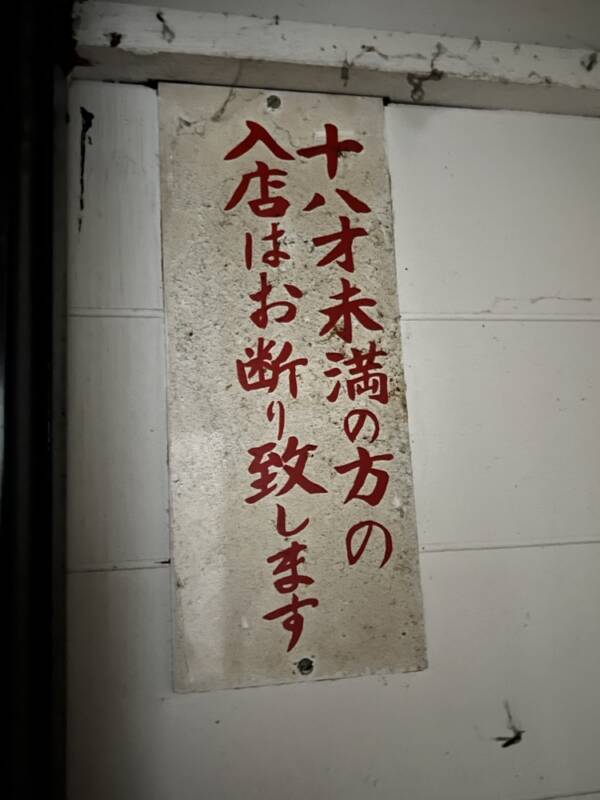 十八才未満の方の
入店はお断り致します